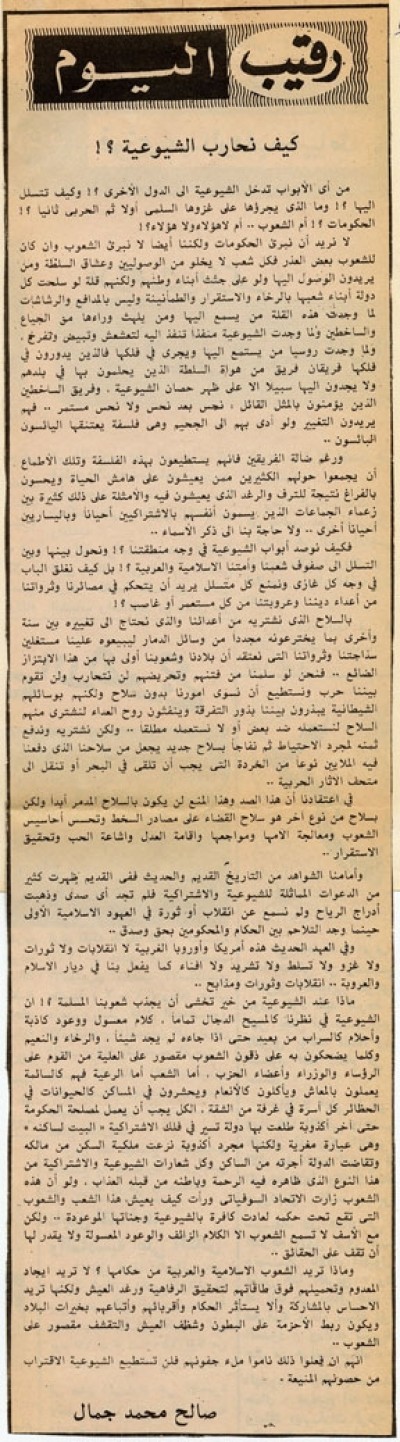 رقيب اليوم
كيف نحارب الشيوعية ؟!
من أى الأبواب تدخل الشيوعية الى الدول الأخرى ؟! وكيف تتسلل
اليها ؟! وما الذى يجرؤها على غزوها السلمى أولا ثم الحربى ثانيا ؟!
الحكومات ؟! أم الشعوب .. أم لاهؤلاء ولا هؤلاء ؟!
لا نريد أن نبرئ الحكومات ولكننا أيضا لا نبرئ الشعوب وان كان
للشعوب بعض العذر فكل شعب لا يخلو من الوصوليين وعشاق السلطة ومن
يريدون الوصول اليها ولو على جثث أبناء وطنهم ولكنهم قلة لو سلحت كل
دولة أبناء شعبها بالرخاء والاستقرار والطمأنينة وليس بالمدافع والرشاشات
لما وجدت هذه القلة من يسمع اليها ومن يلهث وراءها من الجياع
والساخطين ولما وجدت الشيوعية منفذا تنفذ اليه لتعشعش وتبيض وتفرخ .
ولما وجدت روسيا من يستمع اليها ويجرى في فلكها فالذين يدورون في
فلكها فريقان فريق من هواة السلطة الذين يحلمون بها في بلدهم
ولا يجدون اليها سبيلا الا على ظهر حصان الشيوعية ، وفريق الساخطين
الذين يؤمنون بالمثل القائل : نجس بعد نحس ولا نحس مستمر .. فهم
يريدون التغيير ولو أدى بهم الى الجحيم وهى فلسفة يعتنقها اليائسون
البائسون ..
ورغم ضآلة الفريقين فانهم يستطيعون بهذه الفلسفة وتلك الأطماع
أن يجمعوا حولهم الكثيرين ممن يعيشون على هامش الحياة ويحسون
بالفراغ نتيجة للترف والرغد الذى يعيشون فيه والأمثلة على ذلك كثيرة بين
زعماء الجماعات الذين يسمون أنفسهم بالاشتراكيين أحيانا وباليساريين
أحيانا أخرى .. ولا حاجة بنا الى ذكر الأسماء ..
فكيف نوصد أبواب الشيوعية في وجه منطقتنا ؟! ونحول بينها وبين
التسلل الى صفوف شعبنا وأمتنا الاسلامية والعربية ؟! بل كيف نغلق الباب
في وجه كل غازى ونمنع كل متسلل يريد أن يتحكم في مصائرنا وثرواتنا
من أعداء ديننا وعروبتنا من كل مستعمر أو غاصب ؟!
بالسلاح الذى نشتريه من أعدائنا والذى نحتاج الى تغييره بين سنة
وأخرى بما يخترعونه مجددا من وسائل الدمار ليبيعوه علينا مستغلين
سذاجتنا وثرواتنا التى نعتقد أن بلادنا وشعوبنا أولى بها من هذا الابتزاز
الضائع .. فنحن لو سلمنا من فتنهم وتحريضهم لن نتحارب ولن تقوم
بيننا حرب ونستطيع أن نسوى أمورنا بدون سلاح ولكنهم بوسائلهم
الشيطانية يبذرون بيننا بذور التفرقة وينفثون روح العداء لنشترى منهم
السلاح لنستعمله ضد بعض أو لا نستعمله مطلقا .. ولكن نشتريه وندفع
ثمنه لمجرد الاحتياط ثم نفاجأ بسلاح جديد يجعل من سلاحنا الذى دفعنا
فيه الملايين نوعا من الخردة التى يجب أن تلقى في البحر أو تنقل الى
متحف الآثار الحربية ..
في اعتقادنا أن هذا الصد وهذا المنع لن يكون بالسلاح المدمر أبدا ولكن
بسلاح من نوع آخر هو سلاح القضاء على مصادر السخط وتحسس أحاسيس
الشعوب ومعالجة آلامها ومواجعها واقامة العدل واشاعة الحب وتحقيق
الاستقرار ..
وأمامنا الشواهد من التاريخ القديم والحديث ففى القديم ظهرت كثير
من الدعوات المماثلة للشيوعية والاشتراكية فلم تجد أى صدى وذهبت
أدراج الرياح ولم نسمع عن انقلاب أو ثورة في العهود الاسلامية الأولى
حينما وجد التلاحم بين الحكام والمحكومين بحق وصدق ..
وفي العهد الحديث هذه أمريكا وأوروبا الغربية لا انقلابات ولا ثورات
ولا غزو ولا تسلط ولا تشريد ولا افناء كما يفعل بنا في ديار الاسلام
والعروبة .. انقلابات وثورات ومذابح ..
ماذا عند الشيوعية من خير تخشى أن يجذب شعوبنا المسلمة ؟! ان
الشيوعية في نظرنا كالمسيح الدجال تماما . كلام معسول ووعود كاذبة
وأحلام كالسراب من بعيد حتى اذا جاءه لم يجد شيئا . والرخاء والنعيم
وكلما يضحكون به على ذقون الشعوب مقصور على العلية من القوم على
الرؤساء والوزراء وأعضاء الحزب . أما الشعب أما الرعية فهم كالسائمة
يعملون بالمعاش ويأكلون كالأنعام ويحشرون في المساكن كالحيوانات في
الحظائر كل أسرة في غرفة من الشقة . الكل يجب أن يعمل لمصلحة الحكومة
حتى آخر أكذوبة طلعت بها دولة تسير في فلك الاشتراكية « البيت لساكنه »
وهى عبارة مغرية ولكنها مجرد أكذوبة نزعت ملكية السكن من مالكه
وتقاضت الدولة أجرته من الساكن وكل شعارات الشيوعية والاشتراكية من
هذا النوع الذى ظاهره فيه الرحمة وباطنه من قبله العذاب . ولو أن هذه
الشعوب زارت الاتحاد السوفياتى ورأت كيف يعيش هذا الشعب والشعوب
التى تقع تحت حكمه لعادت كافرة بالشيوعية وجناتها الموعودة .. ولكن
مع الأسف لا تسمع الشعوب الا الكلام الزائف والوعود المعسولة ولا يقدر لها
أن تقف على الحقائق ..
وماذا تريد الشعوب الاسلامية والعربية من حكامها ؟ لا تريد ايجاد
المعدوم وتحميلهم فوق طاقاتهم لتحقيق الرفاهية ورغد العيش ولكنها تريد
الاحساس بالمشاركة وألا يستأثر الحكام وأقربائهم وأتباعهم بخيرات البلاد
ويكون ربط الأحزمة على البطون وشظف العيش والتقشف مقصور على
الشعوب ..
انهم ان فعلوا ذلك ناموا ملء جفونهم فلن تستطيع الشيوعية الاقتراب
من حصونهم المنيعة .
صالح محمد جمال